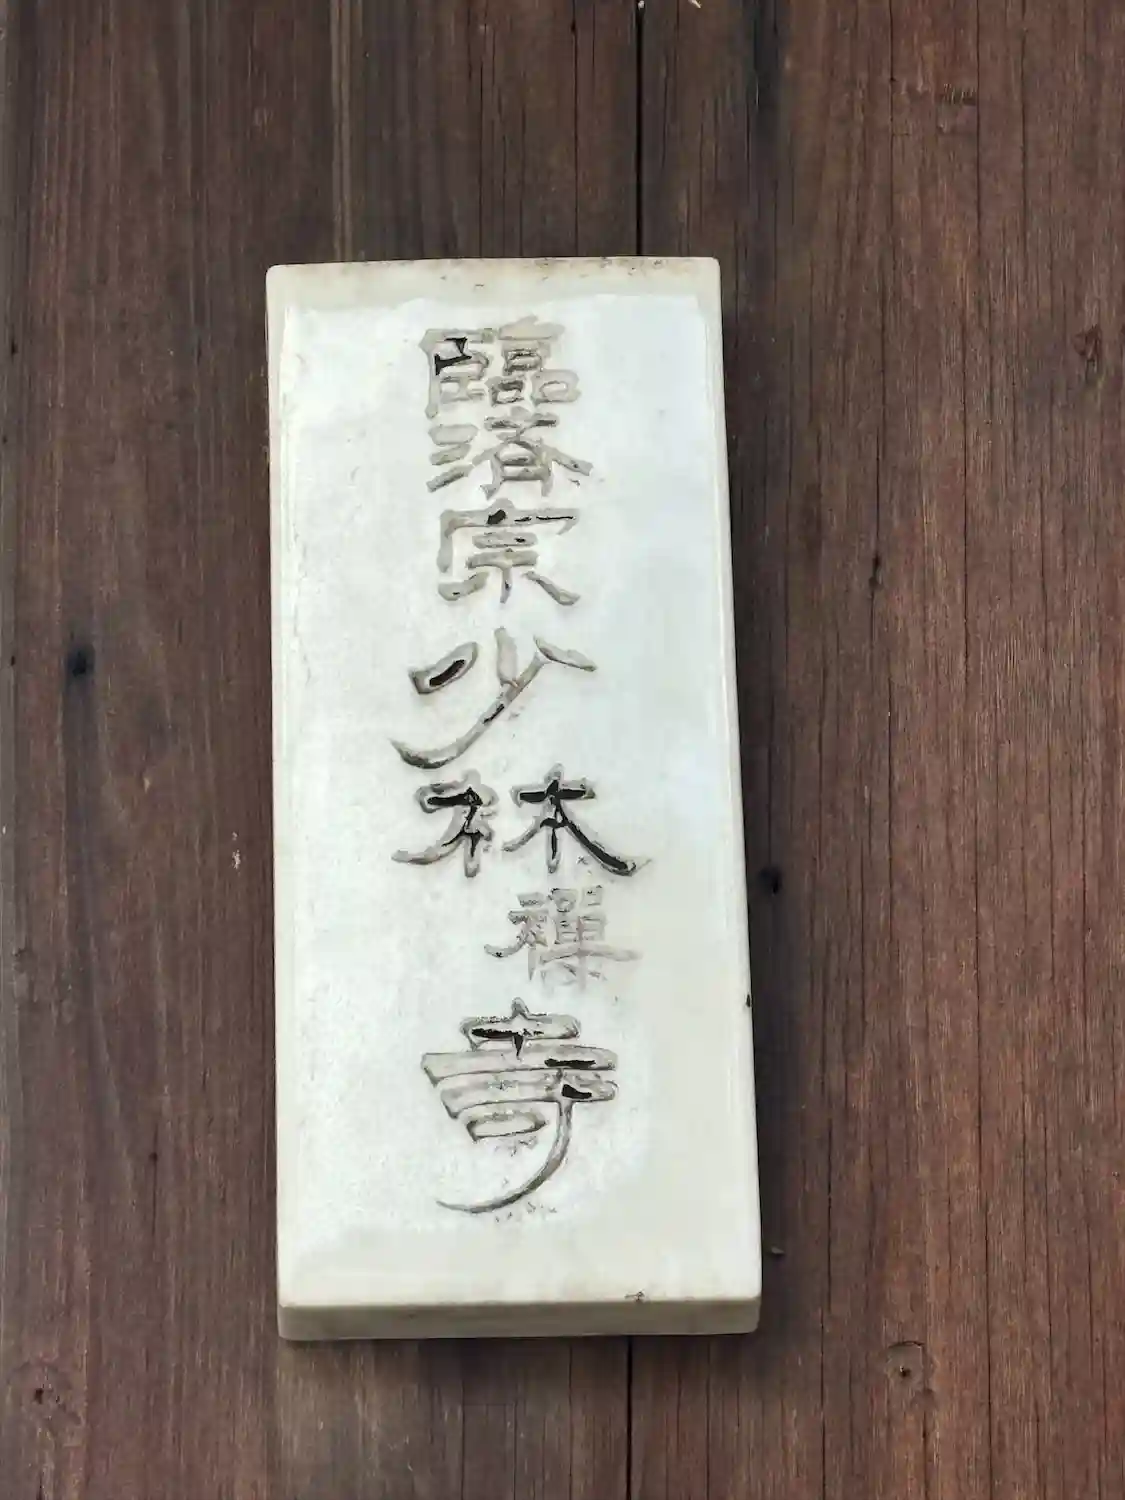 臨済宗少林禪寺